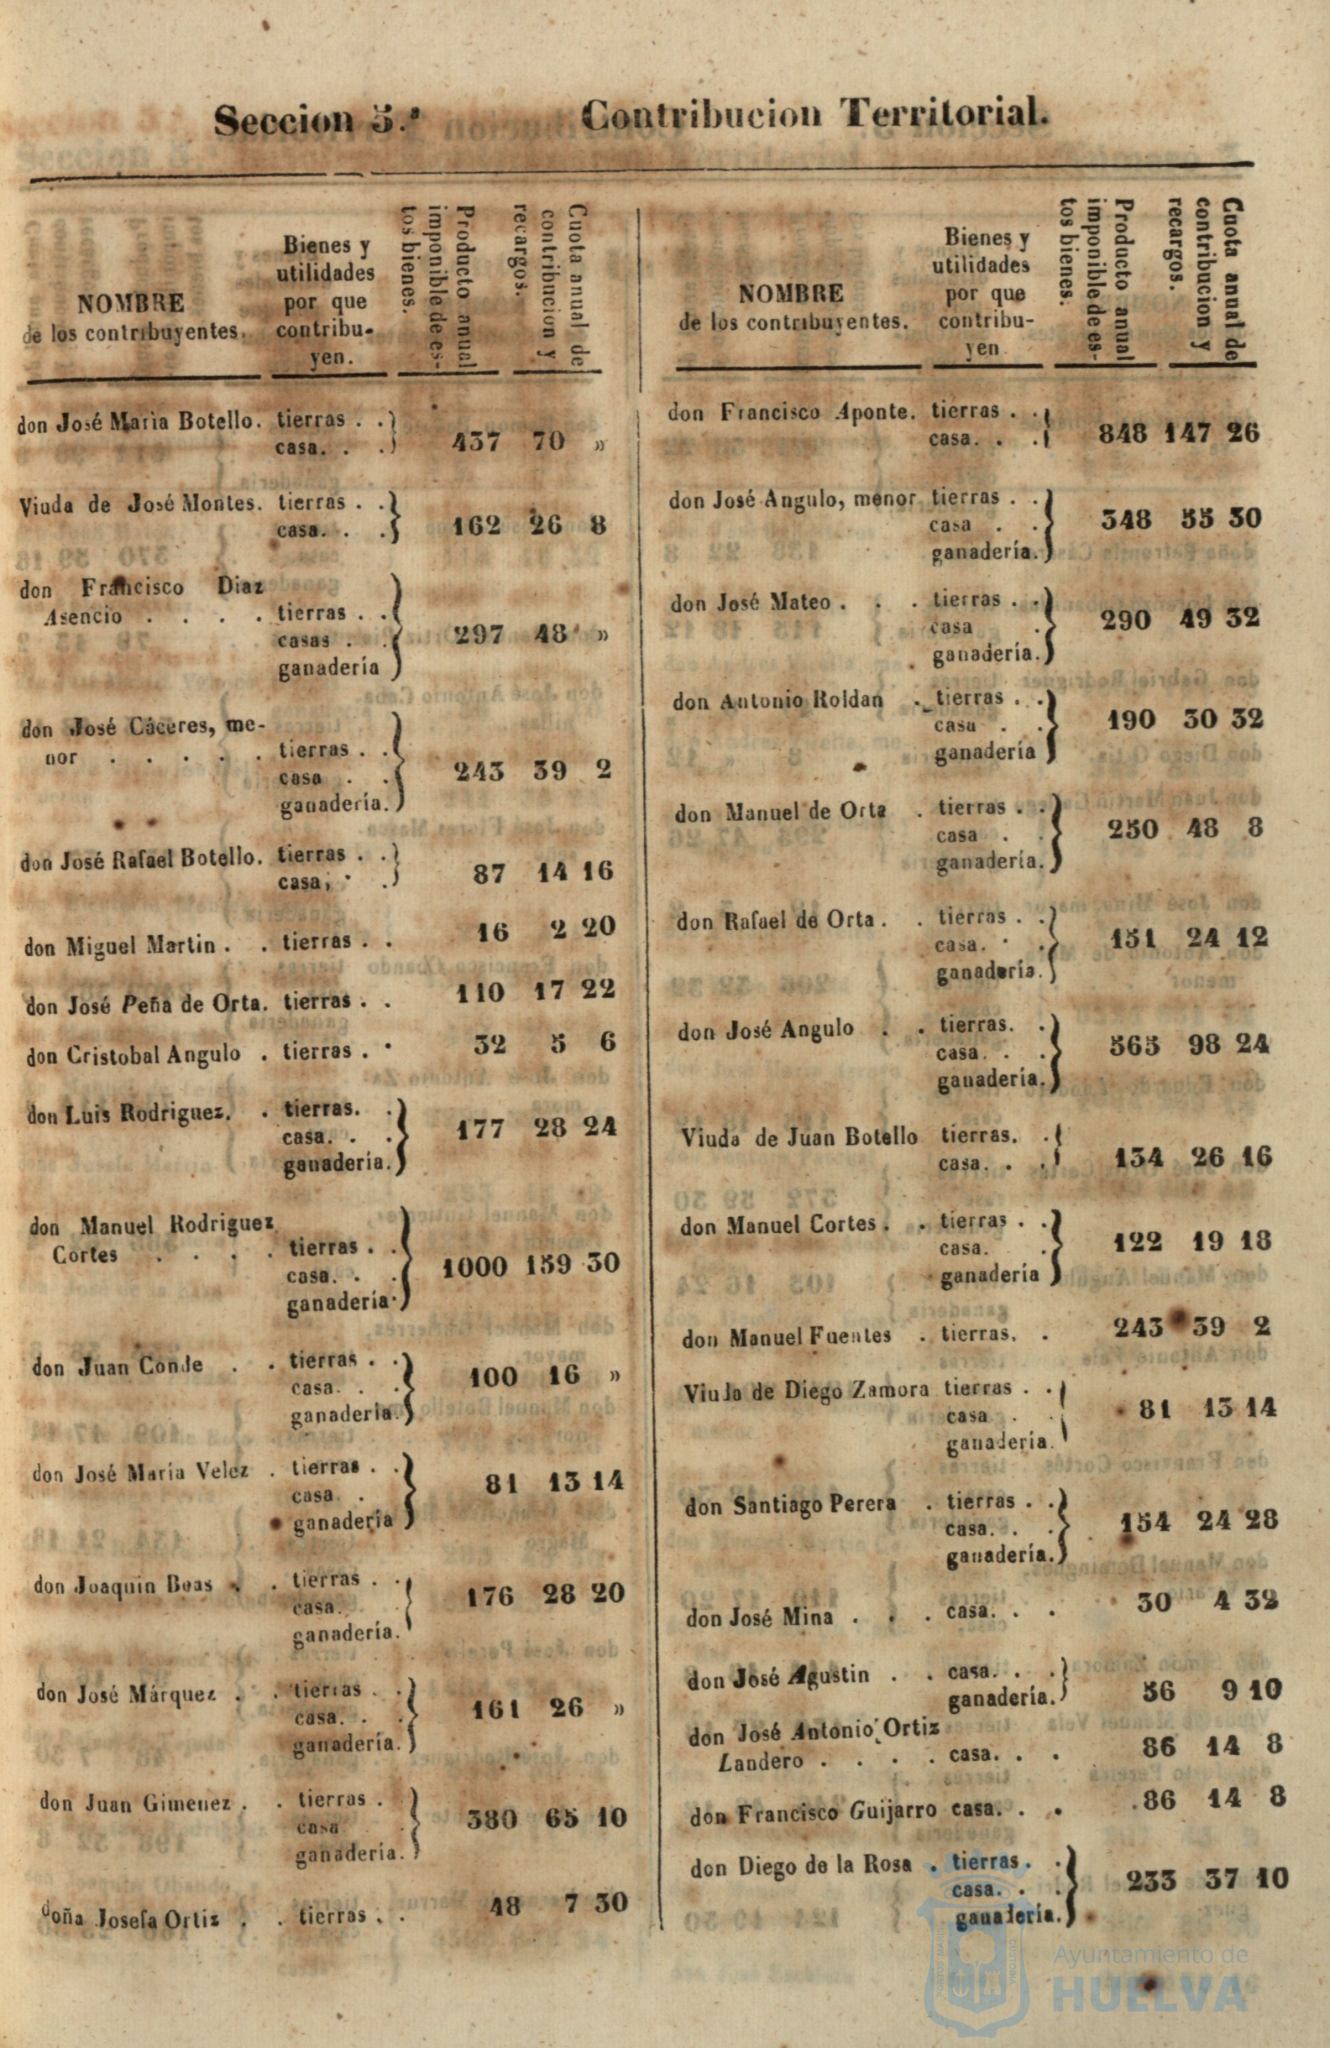 Seccion 5.ª Contribucion Territorial.
NOMBRE
de los contribuyentes.
Bienes y
utilidades
por que
contribu-
yen.
Producto anual
imponible de es-
tos bienes.
Cuota anual de
contribucion y
recargos.
don José Maria Botello. tierras . .
casa. . . 437 70 »
Viuda de José Montes. tierras . .
casa. . . 162 26 8
don Francisco Diaz
Asencio . . . . tierras . .
casas . . 297 48 »
ganadería
don José Cáceres, me-
nor . . . . . tierras . .
casa . . 243 39 2
ganadería.
don José Rafael Botello. tierras . .
casa, . 87 14 16
don Miguel Martin . . tierras . . 16 2 20
don José Peña de Orta. tierras . . 110 17 22
don Cristobal Angulo . tierras . . 32 5 6
don Luis Rodriguez. . tierras. .
casa. . . 177 28 24
ganadería.
don Manuel Rodriguez
Cortes . . . . tierras . .
casa. . . 1000 159 30
ganadería.
don Juan Conde . . tierras . .
casa. . . 100 16 »
ganadería.
don José María Velez . tierras . .
casa . . 81 13 14
ganadería
don Joaquin Boas . . tierras . .
casa. 176 28 20
ganadería.
don José Márquez . . tierras . .
casa. . . 161 26 »
ganadería.
don Juan Gimenez . . tierras .
casa 380 65 10
ganadería.
doña Josefa Ortiz . . tierras . . 48 7 30
NOMBRE
de los contribuyentes.
Bienes y
utilidades
por que
contribu-
yen
Producto anual
imponible de es-
tos bienes.
Cuota anual de
contribucion y
recargos.
don Francisco Aponte. tierras . .
casa. . . 848 147 26
don José Angulo, menor tierras . .
casa . . 348 55 30
ganadería.
don José Mateo . . . tierras . .
casa . 290 49 32
ganadería.
don Antonio Roldan . tierras . .
casa . . 190 30 32
ganadería
don Manuel de Orta . tierras . .
casa . . 250 48 8
ganadería.
don Rafael de Orta . . tierras . .
casa. . . 151 24 12
ganadería.
don José Angulo . . tierras. .
casa. . . 565 98 24
ganadería.
Viuda de Juan Botello tierras. .
casa. . . 134 26 16
don Manuel Cortes . . tierras . .
casa. . 122 19 18
ganadería
don Manuel Fuentes . tierras. . 243 39 2
Viuda de Diego Zamora tierras . .
casa . . 81 13 14
ganadería.
don Santiago Perera . tierras . .
casa. . . 154 24 28
ganadería.
don José Mina . . . casa. . . 30 4 32
don José Agustin . . casa. . .
ganadería. 56 9 10
don José Antonio Ortiz
Landero . . . . casa. . . 86 14 8
don Francisco Guijarro casa. . . 86 14 8
don Diego de la Rosa . tierras. .
casa. . . 233 37 10
ganadería.
Ayuntamiento de
HUELVA